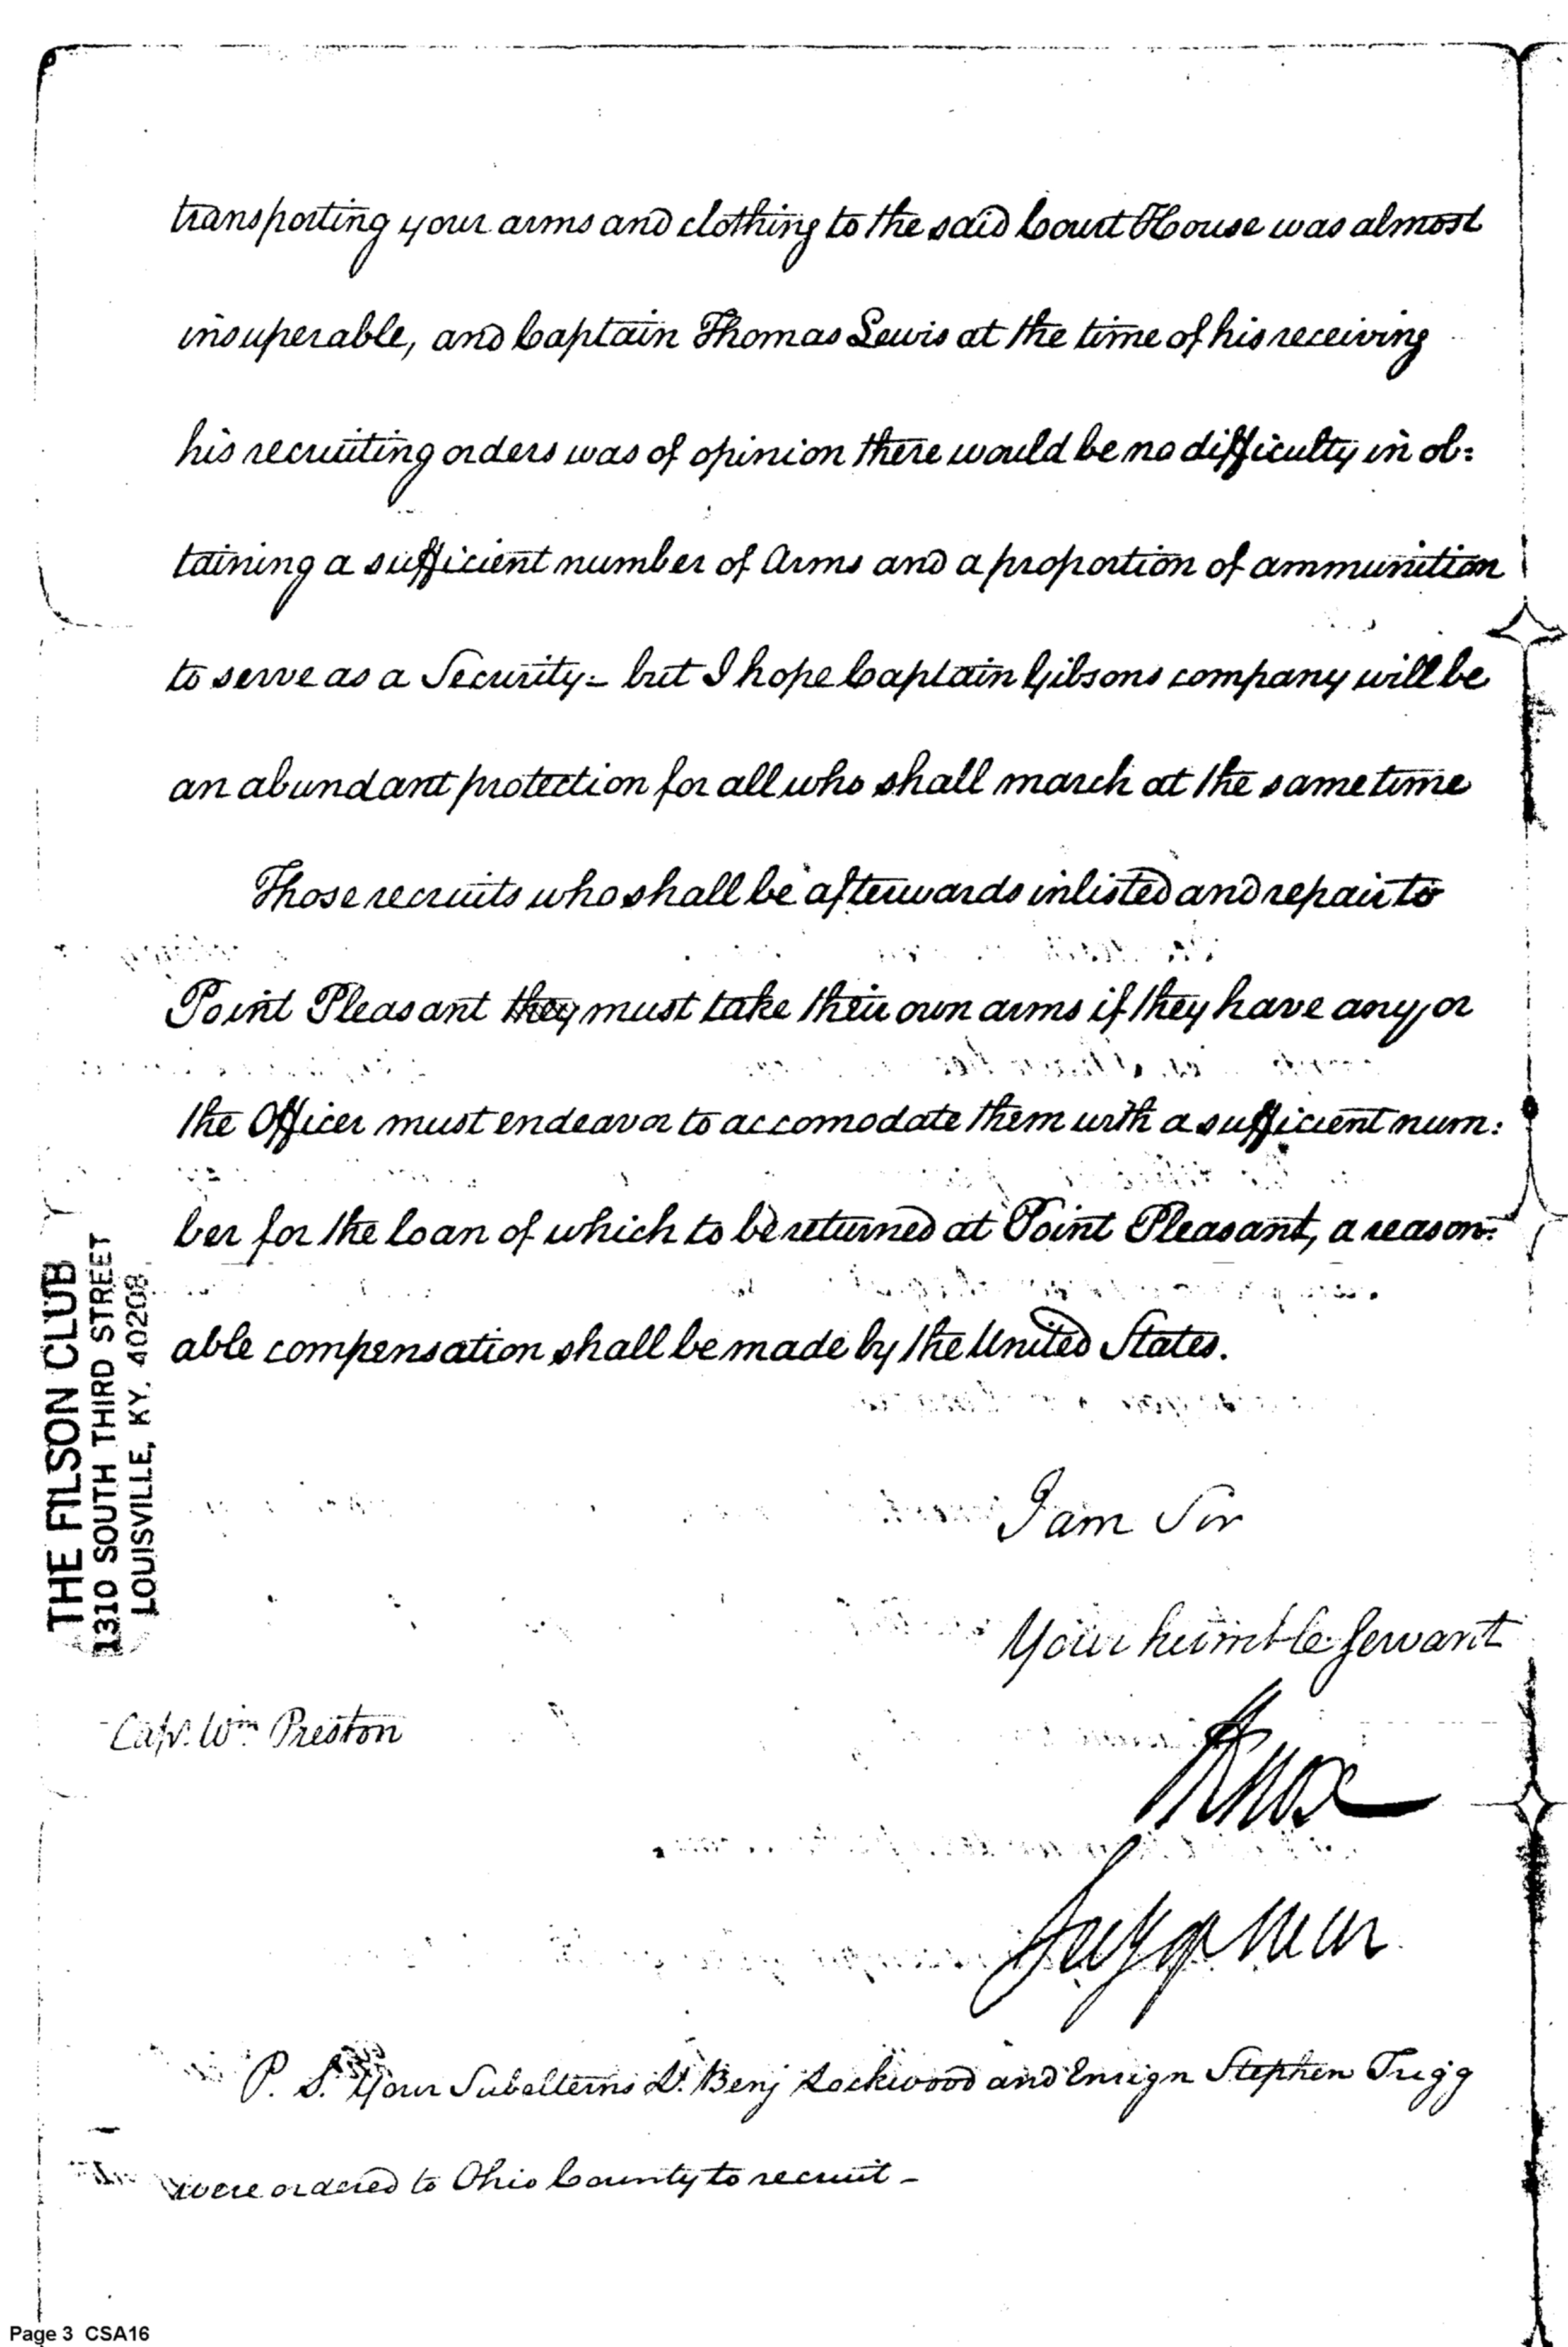 transporting your arms and clothing to the said Court House was almost
insuperable, and Captain Thomas Lewis at the time of his receiving
his recruiting orders was of opinion there would be no difficulty in ob:
taining a sufficient number of Arms and a proportion of ammunition
to serve as a Security.- but I hope Captain Gibsons company will be
an abundant protection for all who shall march at the same time
Those recruits who shall be afterwards inlisted and repair to
Point Pleasant they must take their own arms if they have any, or
the Officer must endeavor to accomodate them with a sufficient num:
ber for the loan of which to be returned at Point Pleasant, a reason:
able compensation shall be made by the United States.
I am Sir
Your humble Servant
Capt. Wm Preston
HKnox
Secy of War
P. S. Your Subalterns Lt. Benj Lockwood and Ensign Stephen Trigg
were ordered to Ohio County to recruit -
THE FILSON CLUB
1310 SOUTH THIRD STREET
LOUISVILLE, KY. 40208
Page 3 CSA16